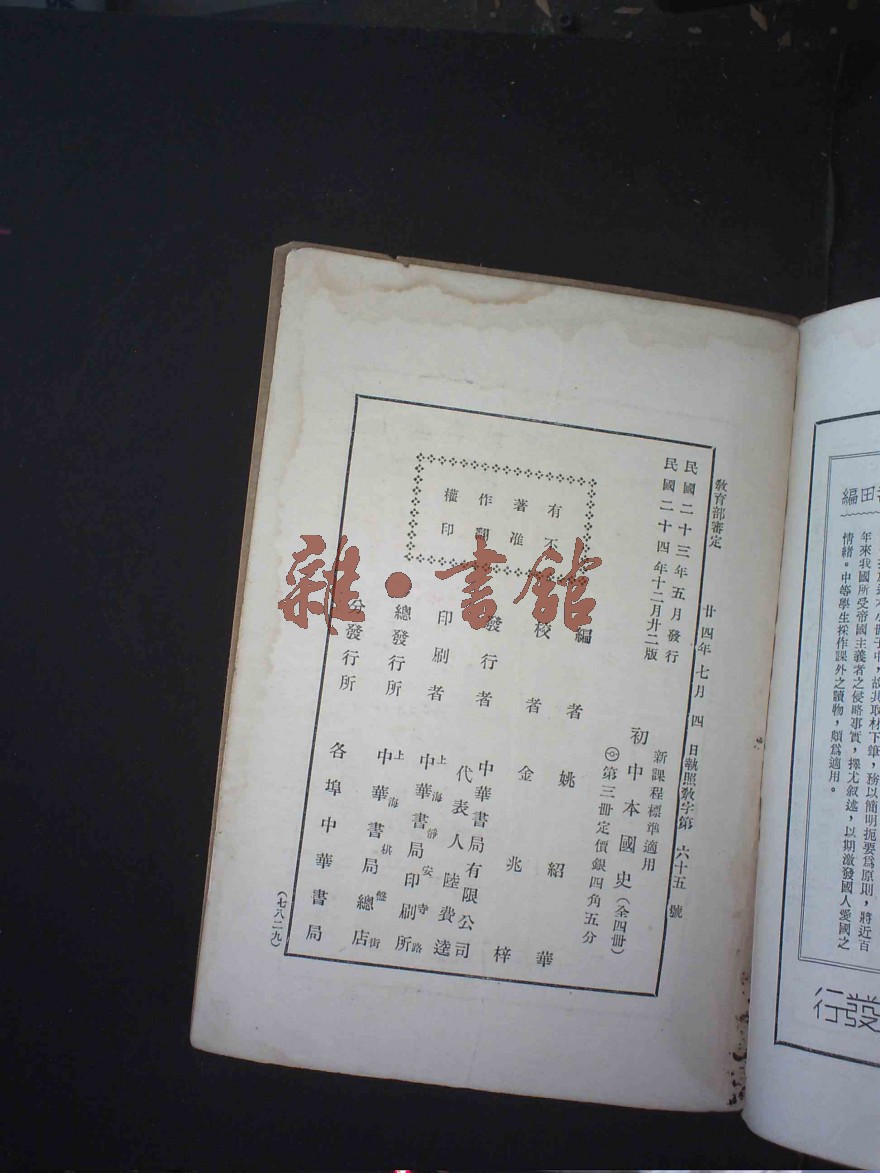 教育部審定 廿四年七月四日執照教字第六十五號
民國二十三年五月發行
民國二十四年十二月廿二版
新課程標準適用
初中本國史（全四冊）
◎第三冊定價銀四角五分
有不
著准
作翻
權印
編者 姚紹華
校者 金兆梓
發行者 中華書局有限公司
代表人 陸費逵
印刷者 上海靜安寺路
中華書局印刷所
總發行所 上海棋盤街
中華書局總店
分發行所 各埠中華書局
（七八二九）
雜·書館
田
編
年來我國所受帝國主義者之侵略事實，擇尤敘述，以期激發國人愛國之
情緒。中等學生採作課外之讀物，頗爲適用。
發行